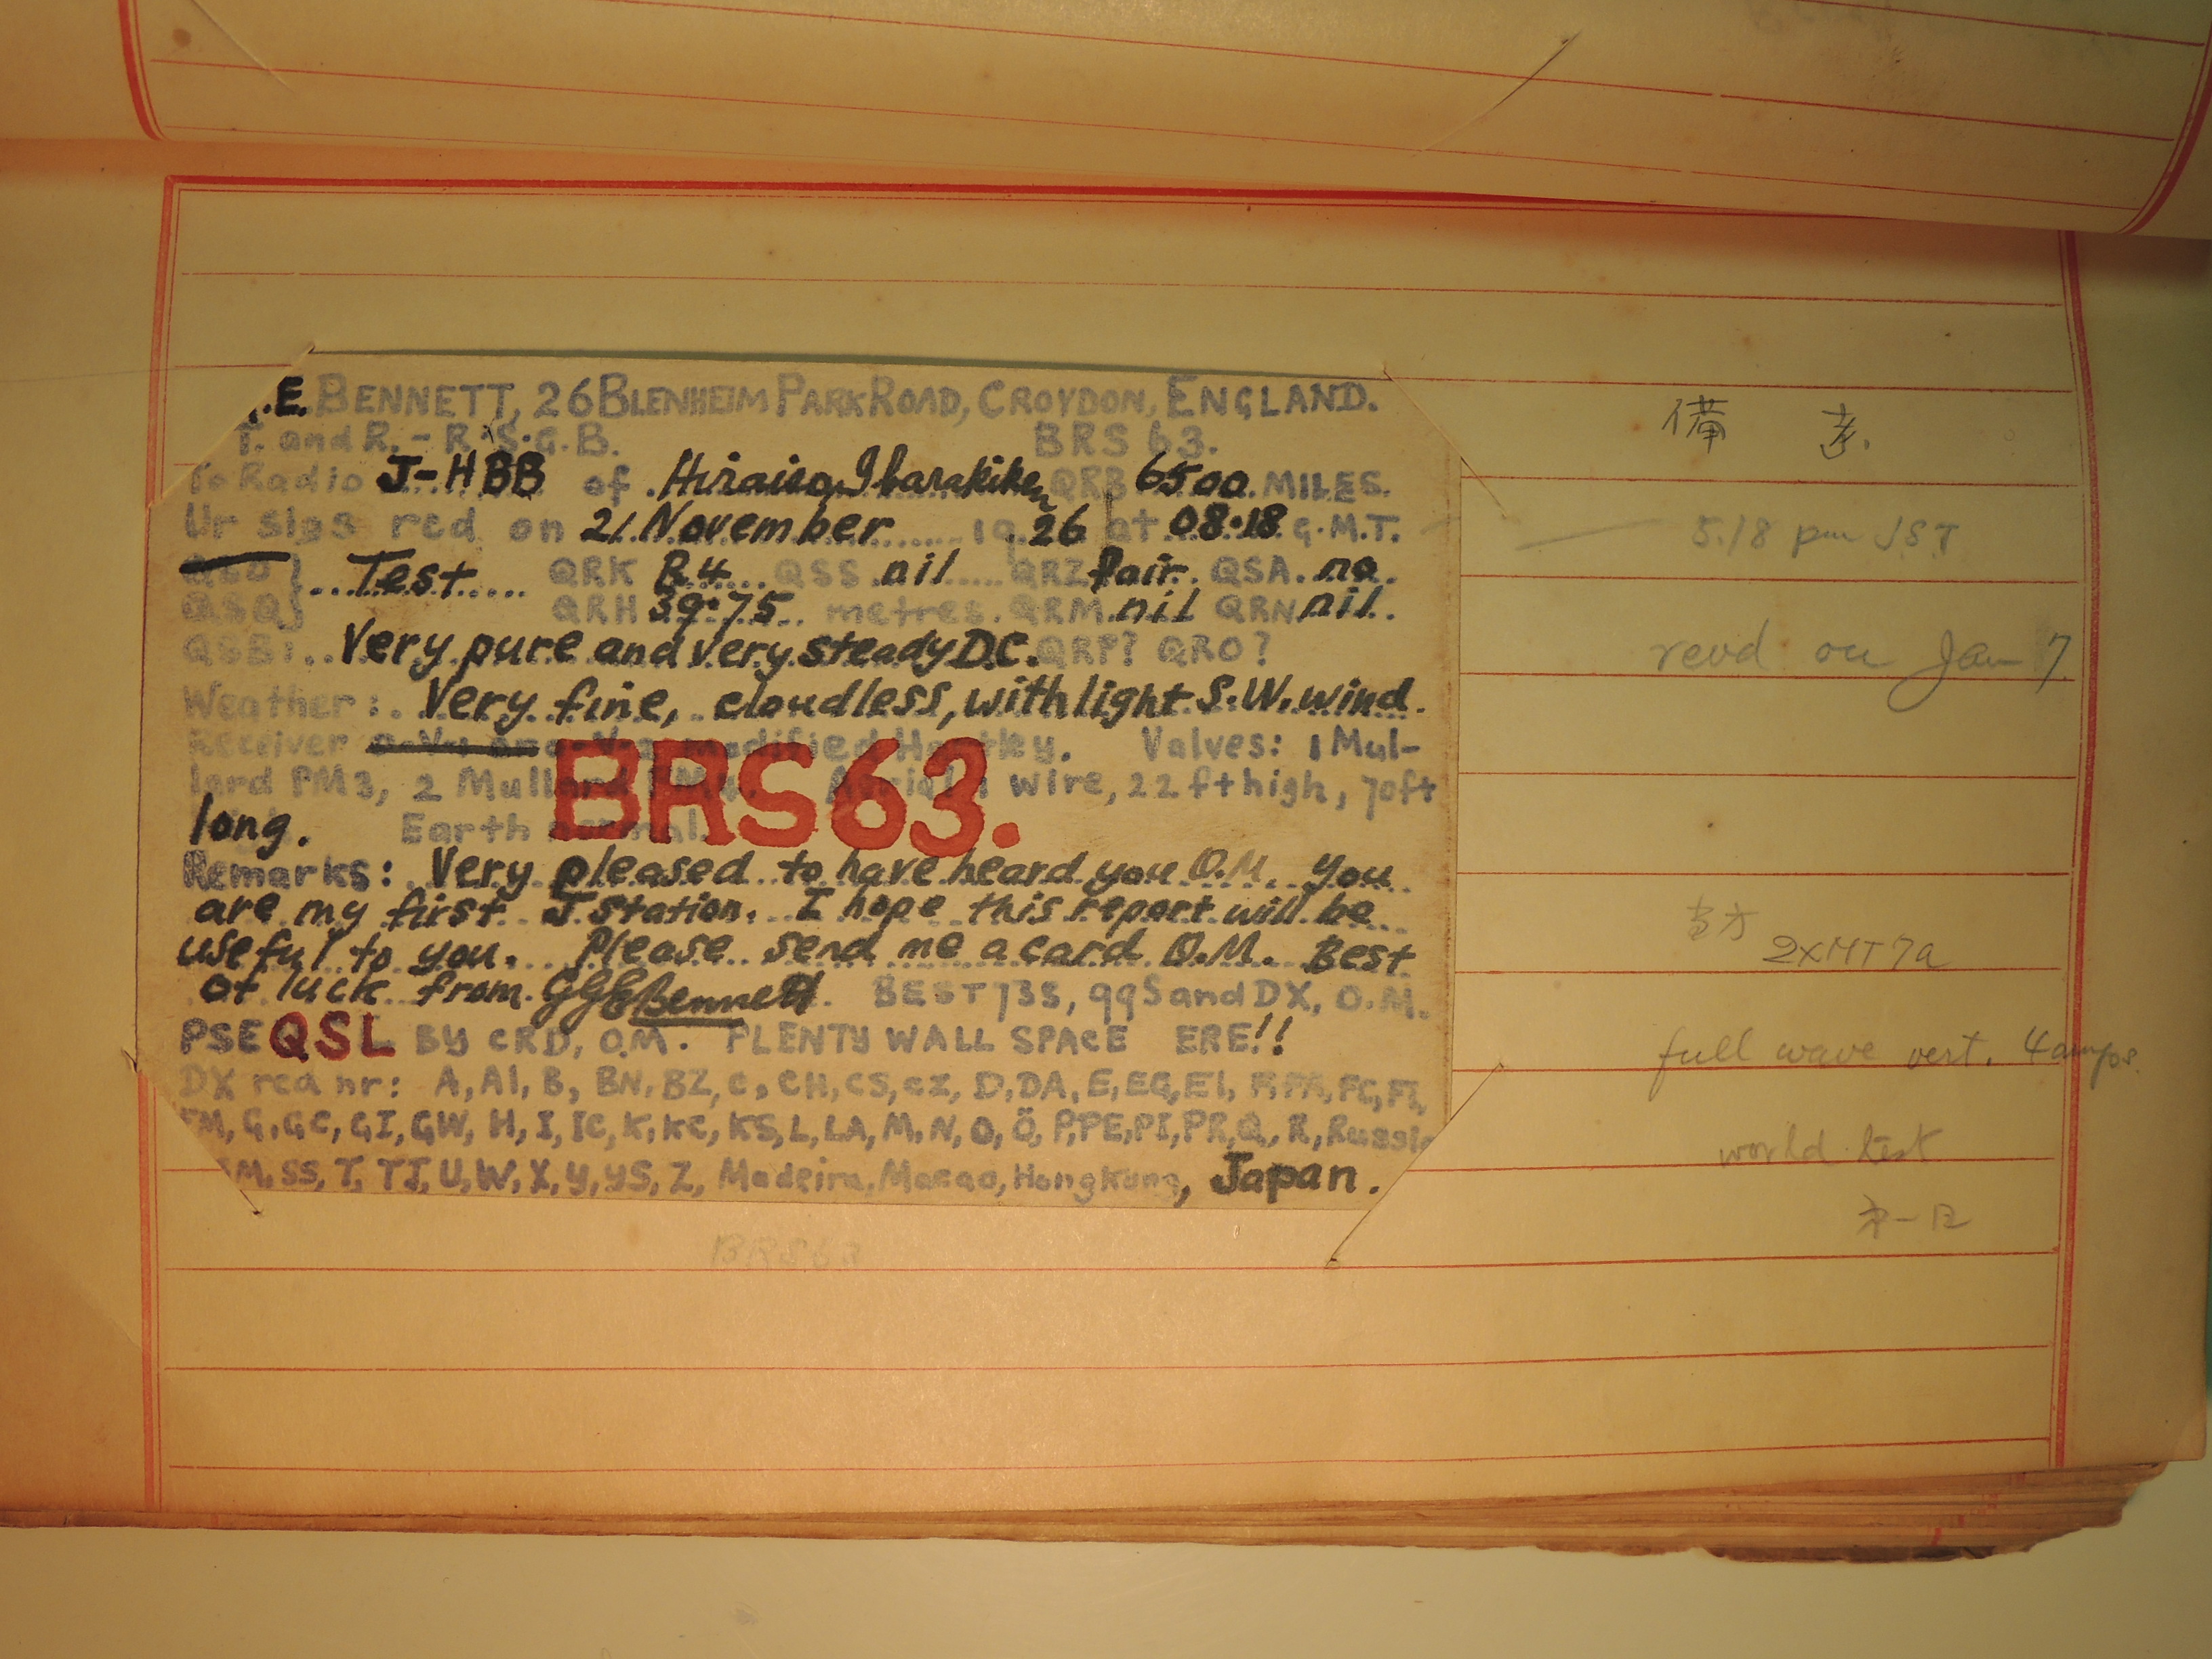 .E. BENNETT, 26 BLENHEIM PARK ROAD, CROYDON, ENGLAND.
T. and R. - R.S.G.B. BRS 63.
To Radio J-HBB of Hiraiso, Ibarakiken QRB 6500 MILES.
Ur sigs red on 21. November 1926 at 08.18 G.M.T.
Test QRK R4 QSS nil QRZ fair. QSA. no.
QSQ} QRH 39.75 metres. QRM nil QRN nil.
QSB: Very pure and very steady D.C. QRP? QRO?
Weather: Very fine, cloudless, with light S.W. wind.
Receiver modified Hartley. Valves: 1 Mul-
lard PM3, 2 Mullard Aerial 1 wire, 22 ft high, 70ft
long. Earth normal.
BRS63.
Remarks: Very pleased to have heard you O.M. You
are my first J station. I hope this report will be
useful to you. Please send me a card O.M. Best
of luck from Bennett. BEST 73s, qqS and DX, O.M.
PSE QSL BY CRD, O.M. PLENTY WALL SPACE ERE!!
DX red nr: A, AI, B, BN, BZ, C, CH, CS, CZ, D, DA, E, EG, EI, F, FA, FC, FI,
FM, G, GC, GI, GW, H, I, IC, K, KC, KS, L, LA, M, N, O, Ö, P, PE, PI, PR, Q, R, Russia
M, SS, T, TJ, U, W, X, Y, YS, Z, Madeira, Macao, Hongkong, Japan.
BRS63
備 考
5.18 pm JST
revd on Jan 7
当方
2XMT7a
full wave vert. 4 amps.
world test
第一日